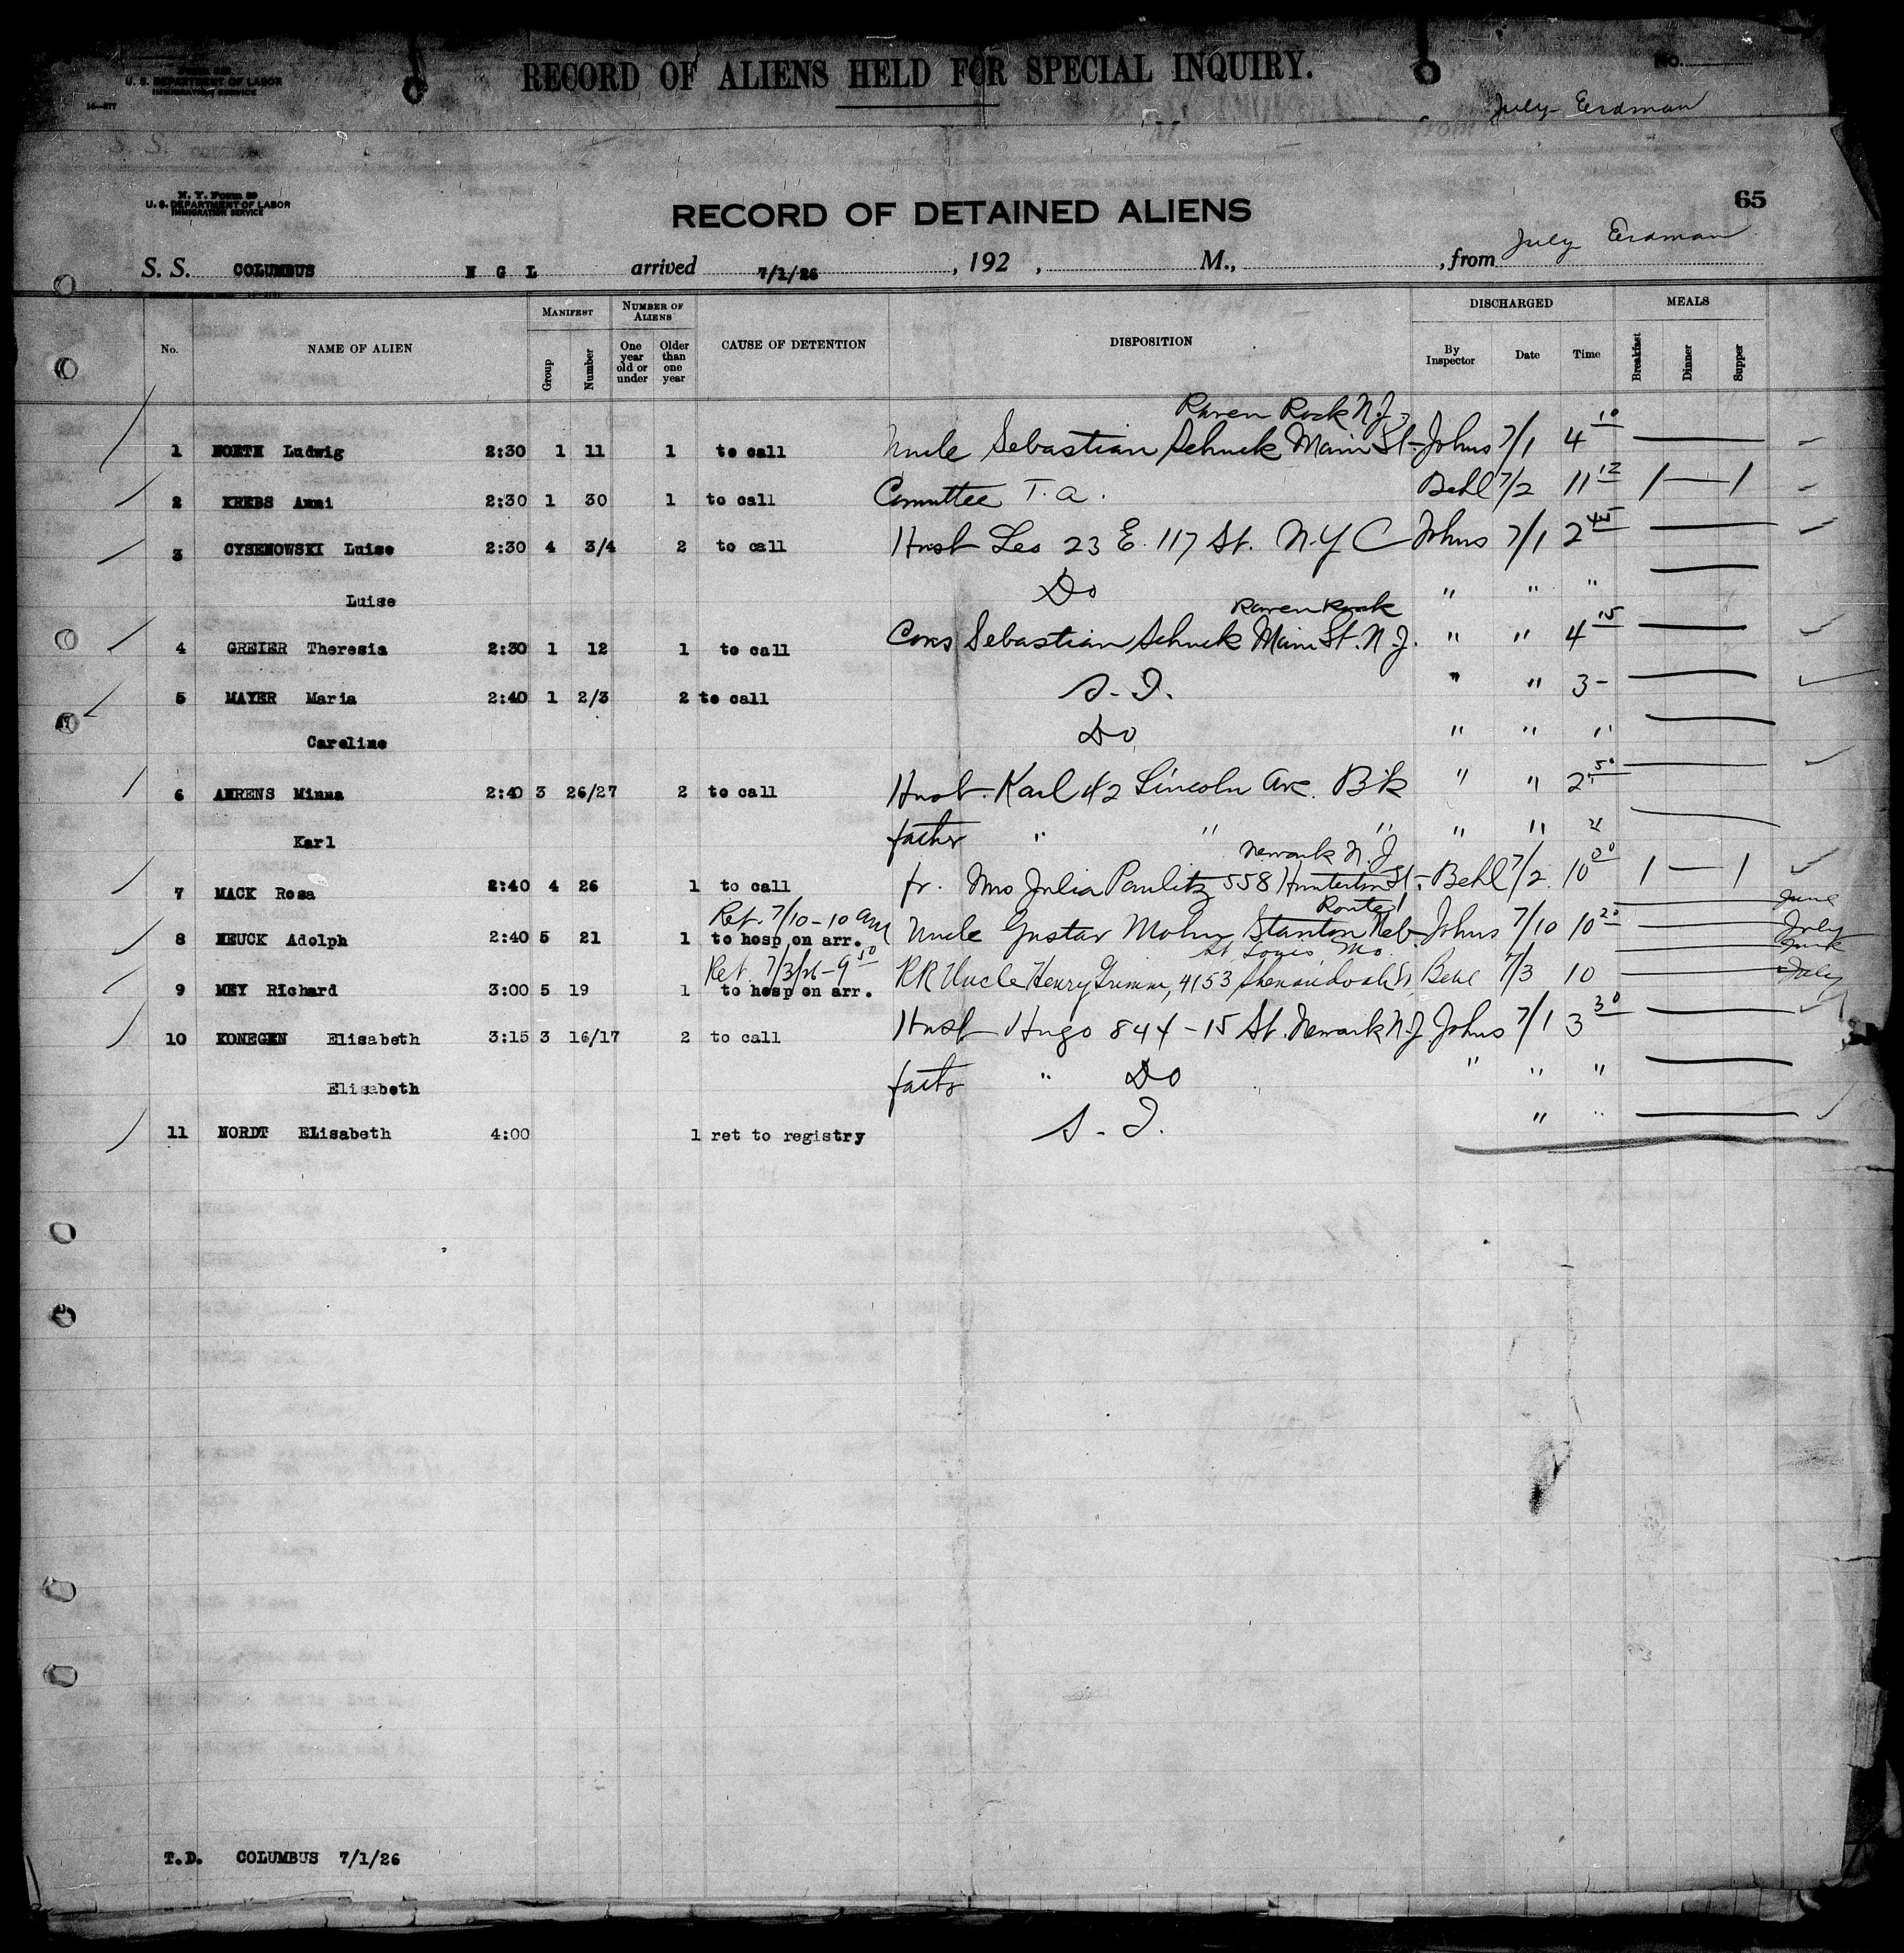 U. S. DEPARTMENT OF LABOR
IMMIGRATION SERVICE
RECORD OF ALIENS HELD FOR SPECIAL INQUIRY.
No.
July Erdman
S. S.
N. Y. Form 99
U. S. DEPARTMENT OF LABOR
IMMIGRATION SERVICE
65
RECORD OF DETAINED ALIENS
S. S. COLUMBUS N G L arrived 7/1/26, 192 , M., , from July Erdman
No. NAME OF ALIEN MANIFEST Group Number NUMBER OF ALIENS One year old or under Older than one year CAUSE OF DETENTION DISPOSITION DISCHARGED By Inspector Date Time MEALS Breakfast Dinner Supper
Raven Rock N.J.
1 Ludwig 2:30 1 11 1 to call Uncle Sebastian Schuck Main St. Johns 7/1 4 10
2 KREBS Anni 2:30 1 30 1 to call Committee T. a. Behl 7/2 11 12 1 — 1
3 CYSENOWSKI Luise 2:30 4 3/4 2 to call Husb Leo 23 E. 117 St. N Y C Johns 7/1 2 45
Luise Do " " "
Raven Rock
4 GREIER Theresia 2:30 1 12 1 to call Cous Sebastian Schuck Main St. N.J. " " 4 15
5 MAYER Maria 2:40 1 2/3 2 to call S. I. " " 3 -
Caroline Do " " "
6 AHRENS Minna 2:40 3 26/27 2 to call Husb. Karl 42 Lincoln Ave. B'k " " 2 50
Karl father " " " " " "
Newark N. J
7 MACK Rosa 2:40 4 26 1 to call fr. Mrs Julia Paulitz 558 Hunterdon St. Behl 7/2 10 00 1 — 1
June
Ret. 7/10 - 10 am Route 1
8 HEUCK Adolph 2:40 5 21 1 to hosp on arr. Uncle Gustav Mohr Stanton Neb Johns 7/10 10 20 July
Ret 7/3/26 - 9 50 St Louis Mo. June
9 MEY Richard 3:00 5 19 1 to hosp on arr. RR Uncle Henry Grimm, 4153 Shenandoah Behl 7/3 10 July
10 KONEGEN Elisabeth 3:15 3 16/17 2 to call Husb Hugo 844 - 15 St. Newark N.J. Johns 7/1 3 30
Elisabeth father " Do " " "
11 NORDT Elisabeth 4:00 1 ret to registry S. I. " "
T.D. COLUMBUS 7/1/26